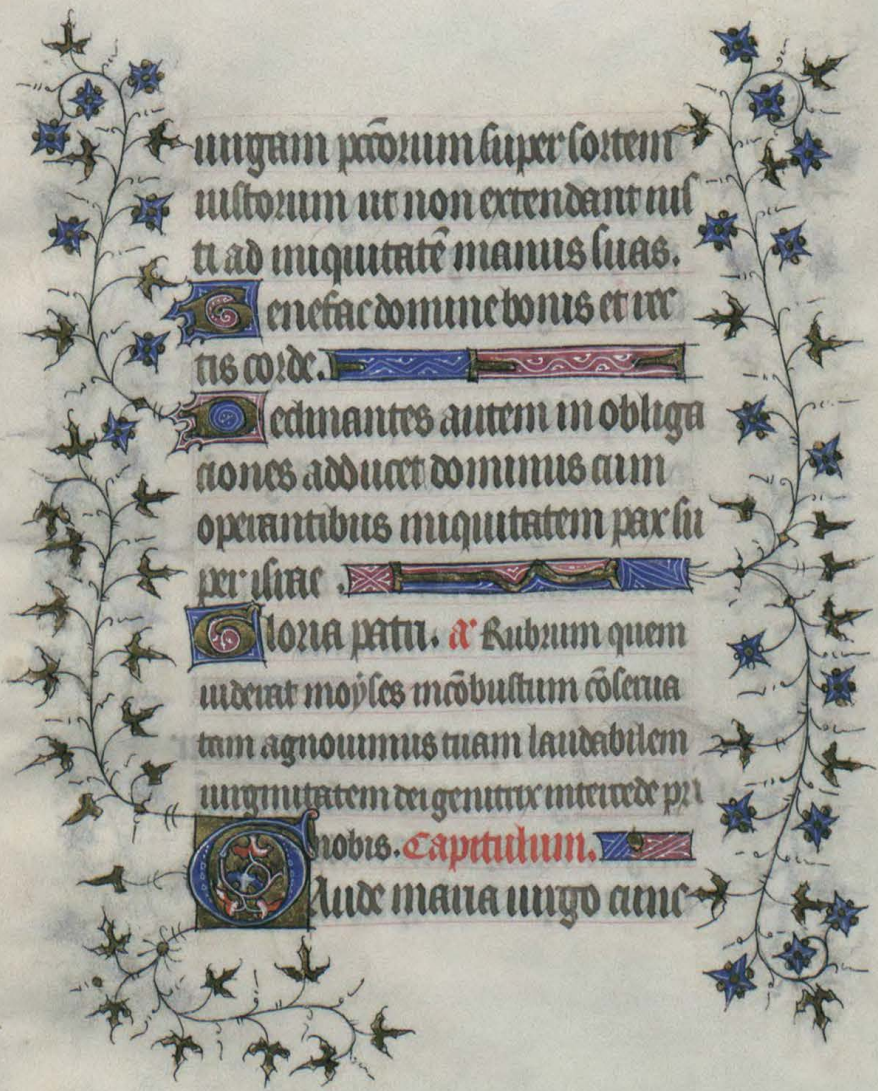 uirgam pccōrum super sortem
iustorum ut non extendant ius
ti ad iniquitatē manus suas.
Benefac domine bonis et rec
tis corde.
Declinantes autem in obliga
ciones adducet dominus cum
operantibus iniquitatem pax su
per israel
Gloria patri. a Rubrum quem
uiderat moyses incōbustum cōserua
tam agnouimus tuam laudabilem
uirginitatem dei genitrix intercede pro
nobis. Capitulum.
Gaude maria uirgo cunc